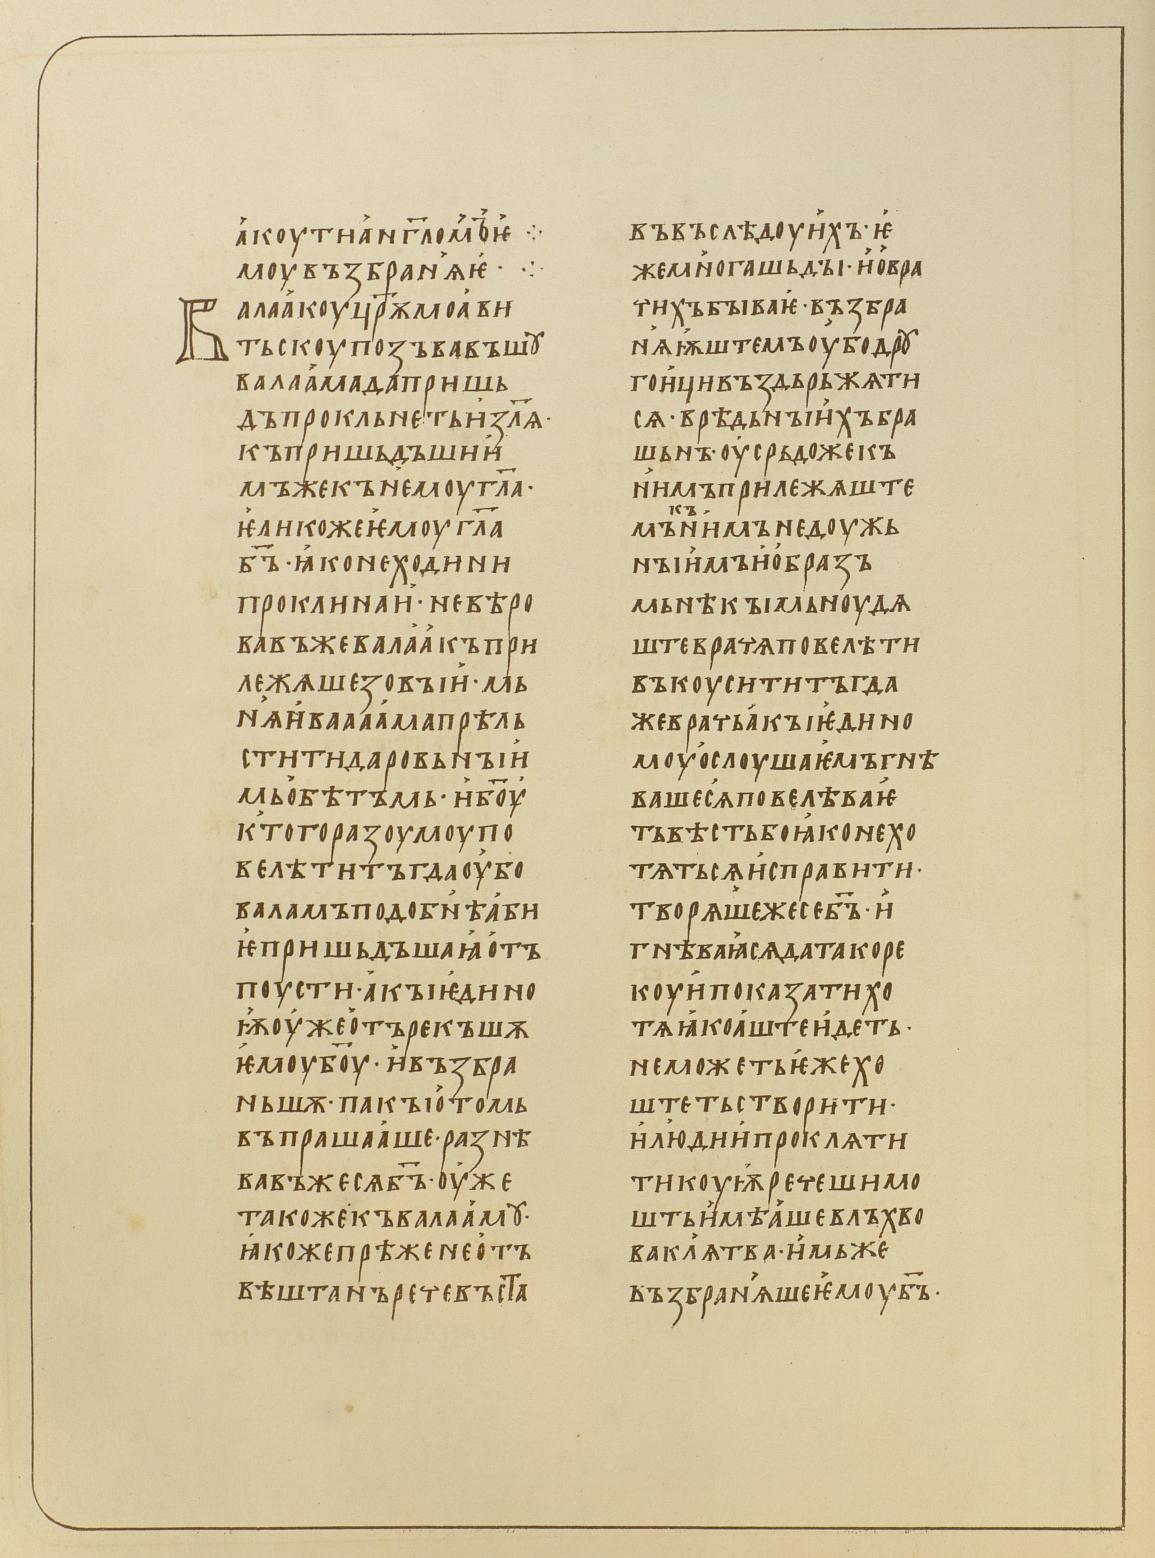 акоути ан҃гломь б҃иѥ
моу възбранꙗѥ ·
Балаакоу цр҃ѫ моави
тьскоу позъвавъшꙋ
валаама да пришь
дъ прокльнеть из҃лѧ ·
къ пришьдъшиим
мъже къ немоу гл҃а ·
ѥликоже ѥмоу гл҃а
б҃ъ · ꙗко не ходи ни
проклинаи · не вѣро
вавъ же валаакъ при
лежѧше зовыи · мь
нѧи валаама прѣль
стити даровьныи
мь обѣтъмь · и б҃оу
к тогоразоумоу по
велѣти тъгда оубо
валамъ подобнѣ аби
ѥ пришьдъшаꙗ отъ
поусти · акы ѥдино
ѭ оуже отърекъшѫ
ѥмоу б҃оу · и възбра
ньшѫ · пакы о томь
въпрашааше · разнѣ
вавъ же сѧ б҃ъ · оуже
такоже къ валаамꙋ ·
ꙗкоже прѣже не отъ
вѣшта нъ рече въста
въ въслѣдоу ихъ · ѥ
же многашьды · и о вра
чихъ бываѥ · възбра
нѧѭштемъ оубо дрꙋ
гоици въздьрьжѧти
сѧ · врѣдьныихъ бра
шьнъ · оусрьдо же къ
нимъ прилежѧште
мъ къ нимъ недоужь
ныимъ и образъ
мьнѣ кыимь ноудѧ
ште врачѧ повелѣти
въкоусити тъгда
же врачь акы ѥдино
моу ослоушаѥмъ гнѣ
ваше сѧ повелѣваѥ
ть вѣсть бо ꙗко не хо
тѧть сѧ исправити ·
творѧше же се б҃ъ · и
гнѣваꙗ сѧ да тако ре
коу и показати хо
тѧ ꙗко аште идеть ·
не можеть ѥже хо
штеть створити ·
и люди и проклѧти
тикоуѭ рече ши мо
шть имѣаше влъхво
ва клѧтва · имьже
възбранꙗше ѥмоу б҃ъ ·